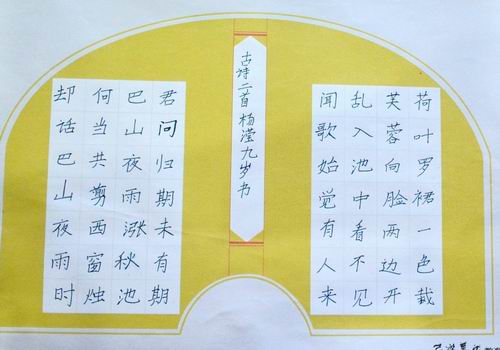 荷叶罗裙一色裁
芙蓉向脸两边开
乱入池中看不见
闻歌始觉有人来
古诗二首杨滢九岁书
君问归期未有期
巴山夜雨涨秋池
何当共剪西窗烛
却话巴山夜雨时